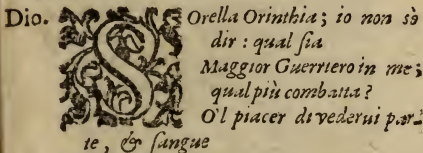 Dio. SOrella Orinthia; io non sò
dir: qual ſia
Maggior Guerriero in me;
qual più combatta?
O'l piacer di vederui par-
te, & ſangue